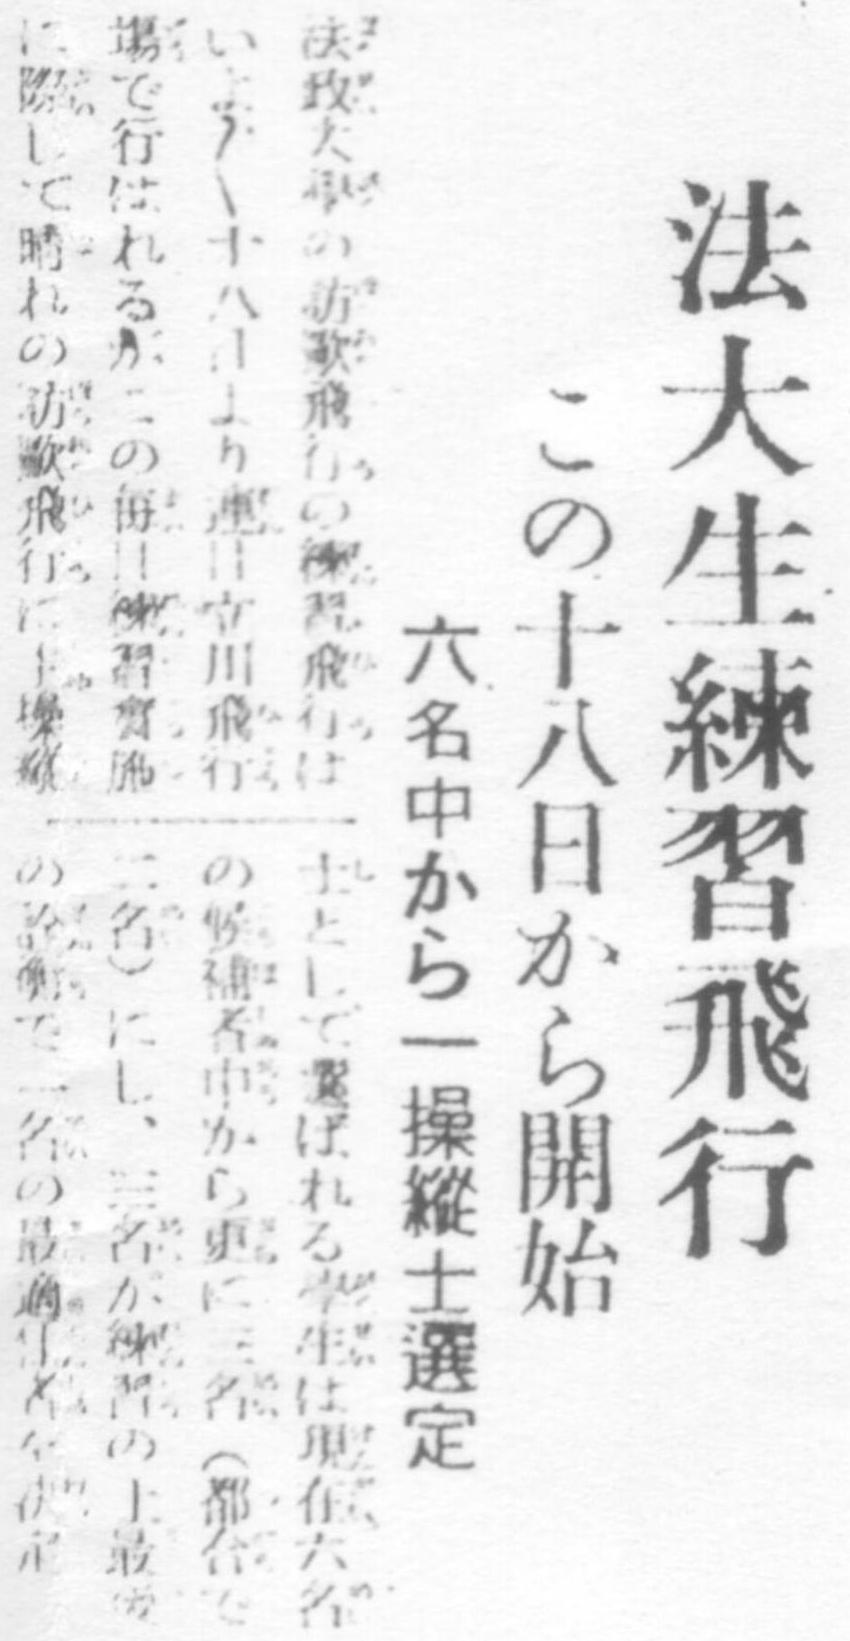 法大生練習飛行
この十八日から開始
六名中から一操縱士選定
法政大學の訪歐飛行の練習飛行は
いよ〱十八日より連日立川飛行
場で行はれるがこの毎日練習實施
に際して晴れの訪歐飛行に主操縱
士として選ばれる學生は現在六名
の候補者中から更に三名（都合で
二名）にし、三名が練習の上最後
の詮衡で一名の最適任者を決定